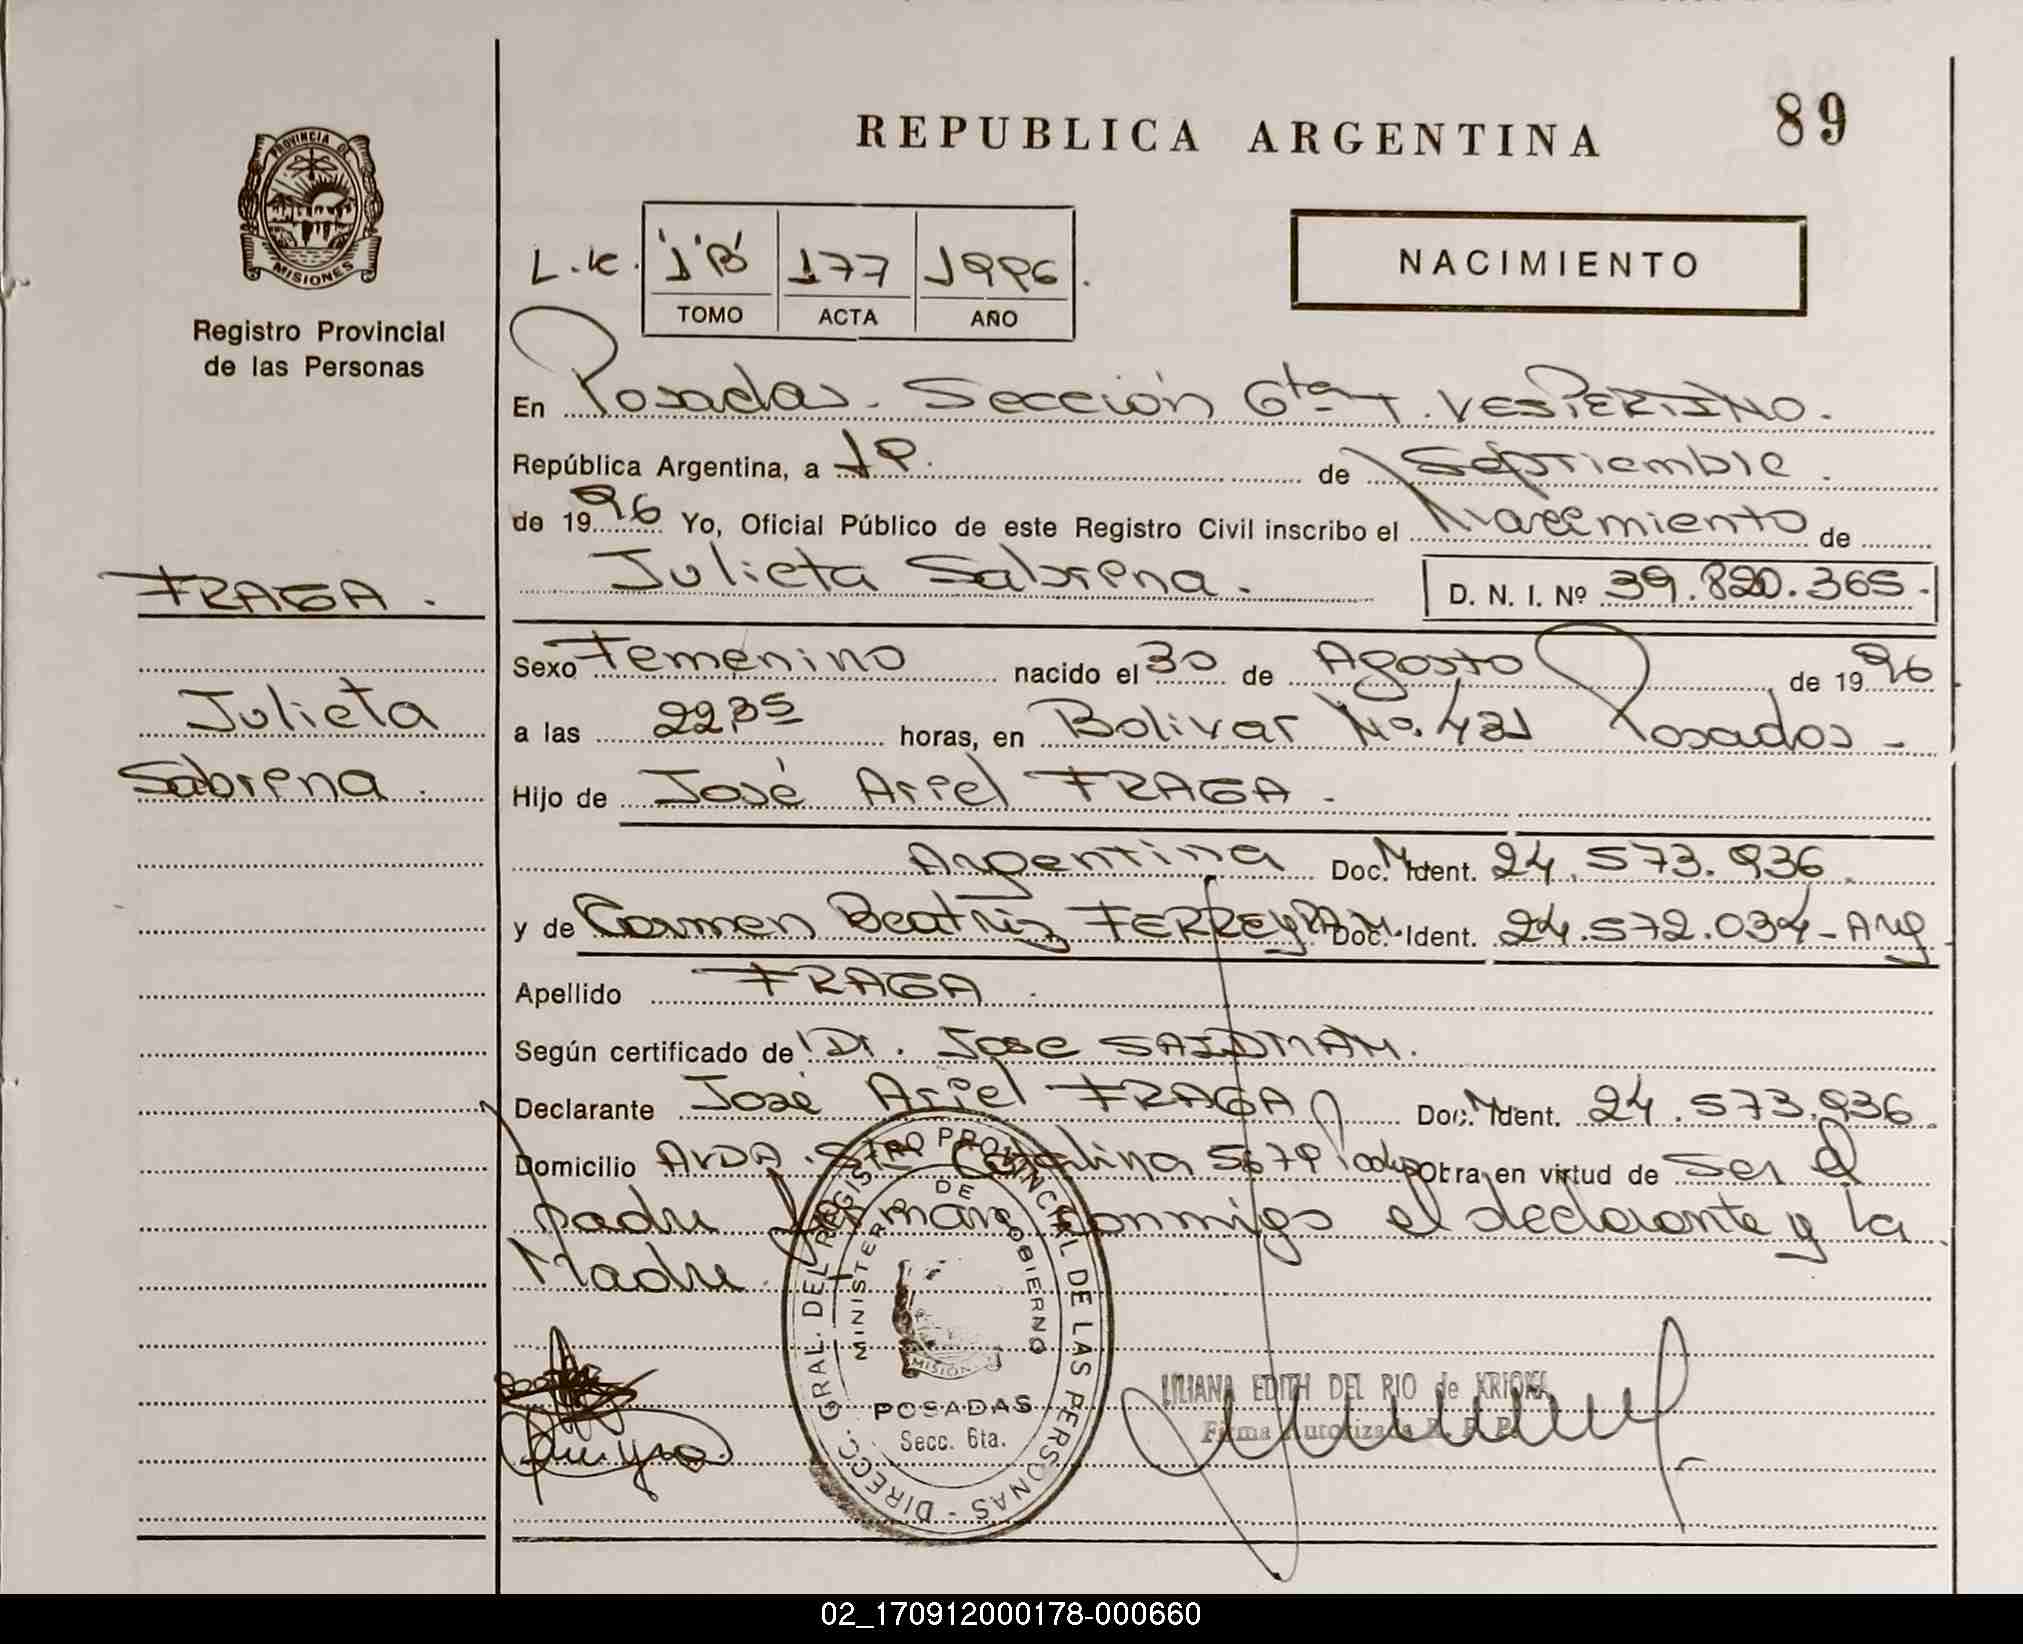 REPUBLICA ARGENTINA
89
PROVINCIA DE
MISIONES
Registro Provincial
de las Personas
L.K. "1'B" 177 1996.
TOMO ACTA AÑO
NACIMIENTO
En Posadas. Sección 6ta T. VESPERTINO.
República Argentina, a 19. de Septiembre.
de 1996 Yo, Oficial Público de este Registro Civil inscribo el Nacimiento de
Julieta Sabrena. D. N. I. Nº 39.820.365.-
FRAGA.
Julieta
Sabrena.
Sexo Femenino nacido el 30 de Agosto de 1996
a las 22,35 horas, en Bolivar No. 421 Posadas -
Hijo de José Ariel FRAGA.
Argentina Doc. M. Ident. 24.573.936.
y de Carmen Beatriz FERREYRA Doc. M. Ident. 24.572.034 - Arg
Apellido FRAGA.
Según certificado de Dr. Jose SAIDMAN.
Declarante José Ariel FRAGA Doc. M. Ident. 24.573.936.
Domicilio AVDA. Sta Catalina 5679 Obra en virtud de ser el
padre firman conmigo el declarante y la
Madre.
DIRECC. GRAL. DEL REGISTRO PROVINCIAL DE LAS PERSONAS -
MINISTERIO DE GOBIERNO
MISIONES
POSADAS
Secc. 6ta.
LILIANA EDITH DEL RIO de
Firma Autorizada R. P. P.
02_170912000178-000660